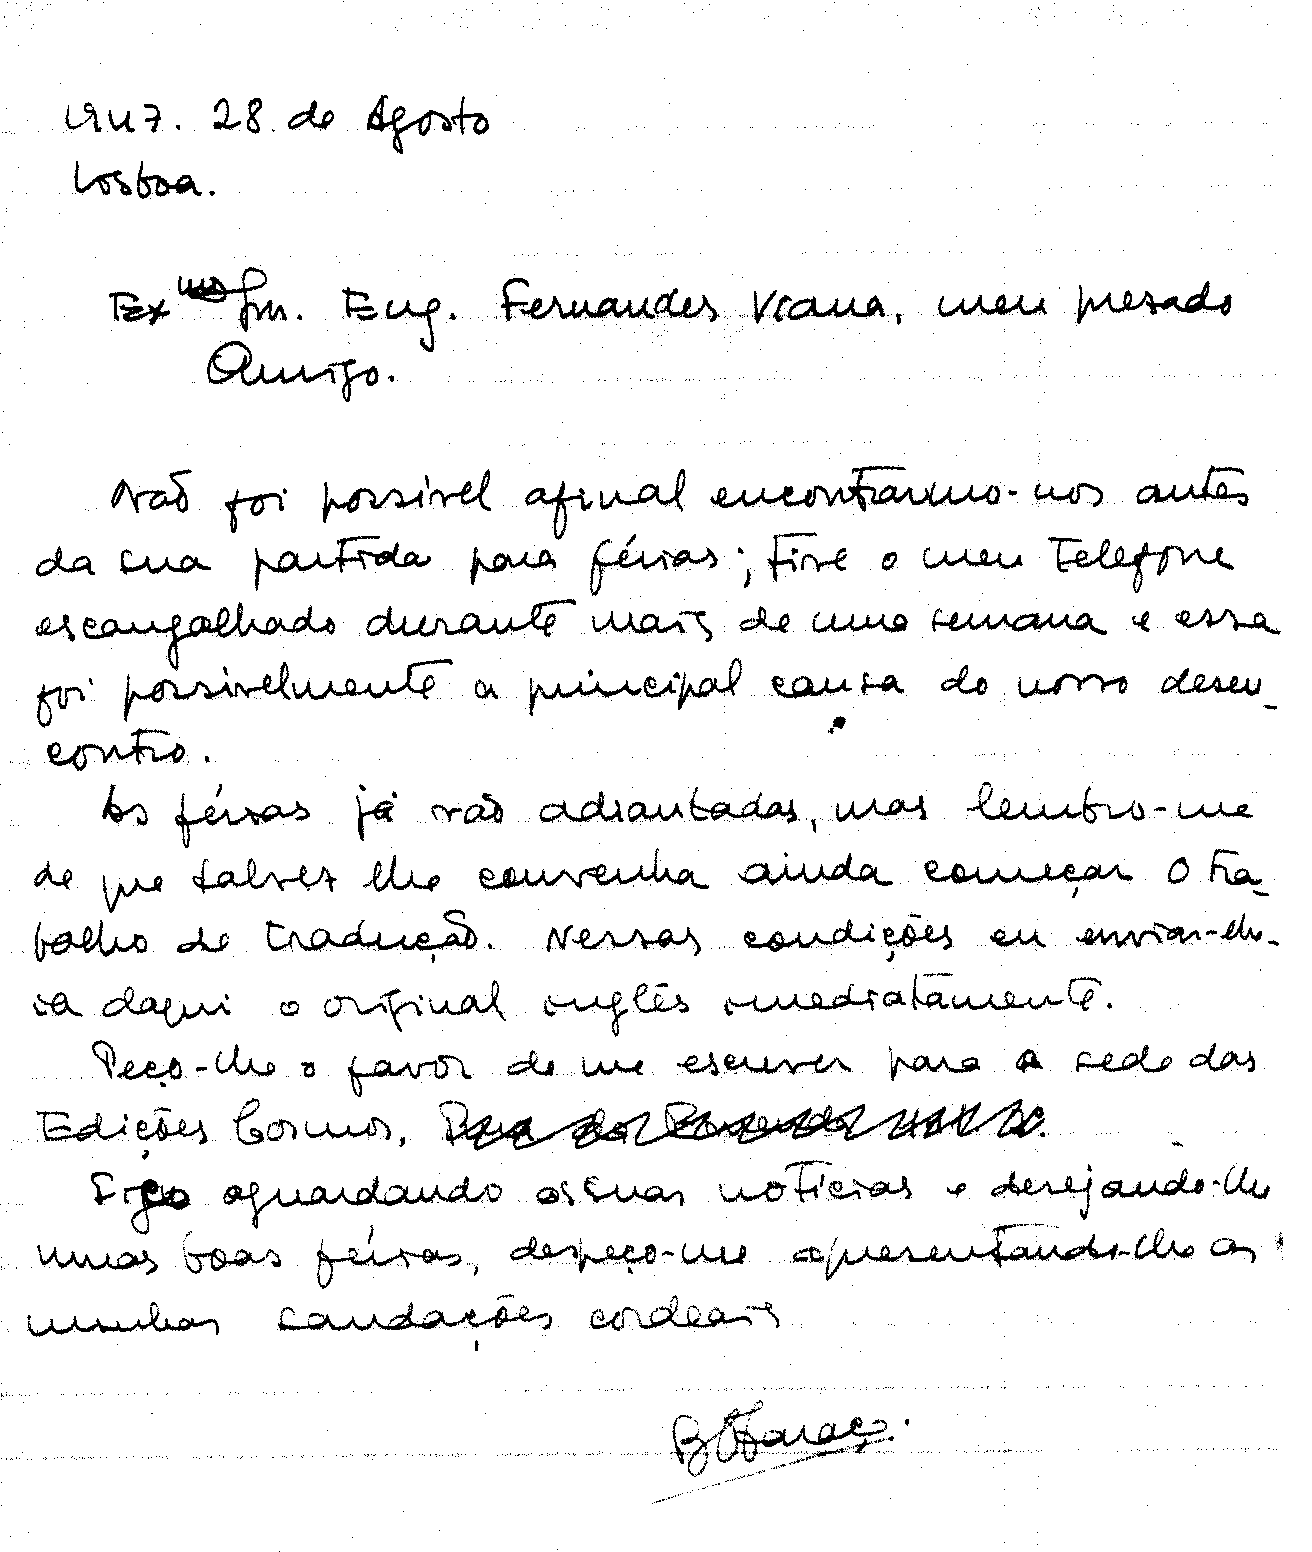 1947. 28 de Agosto
Lisboa.
Exmo Snr. Eng. Fernandes Viana, meu presado
Amigo.
Não foi possivel afinal encontrarmo-nos antes
da sua partida para férias; tive o meu telefone
escangalhado durante mais de uma semana e essa
foi possivelmente a principal causa do nosso desen-
contro.
As férias já vão adiantadas, mas lembro-me
de que talvez lhe convenha ainda começar o tra-
balho de tradução. Nessas condições eu enviar-lhe-
ia daqui o original inglês imediatamente.
Peço-lhe o favor de me escrever para a sede das
Edições Cosmos,
Sigo aguardando as suas noticias e desejando-lhe
umas boas férias, despeço-me apresentando-lhe as
minhas saudações cordeais